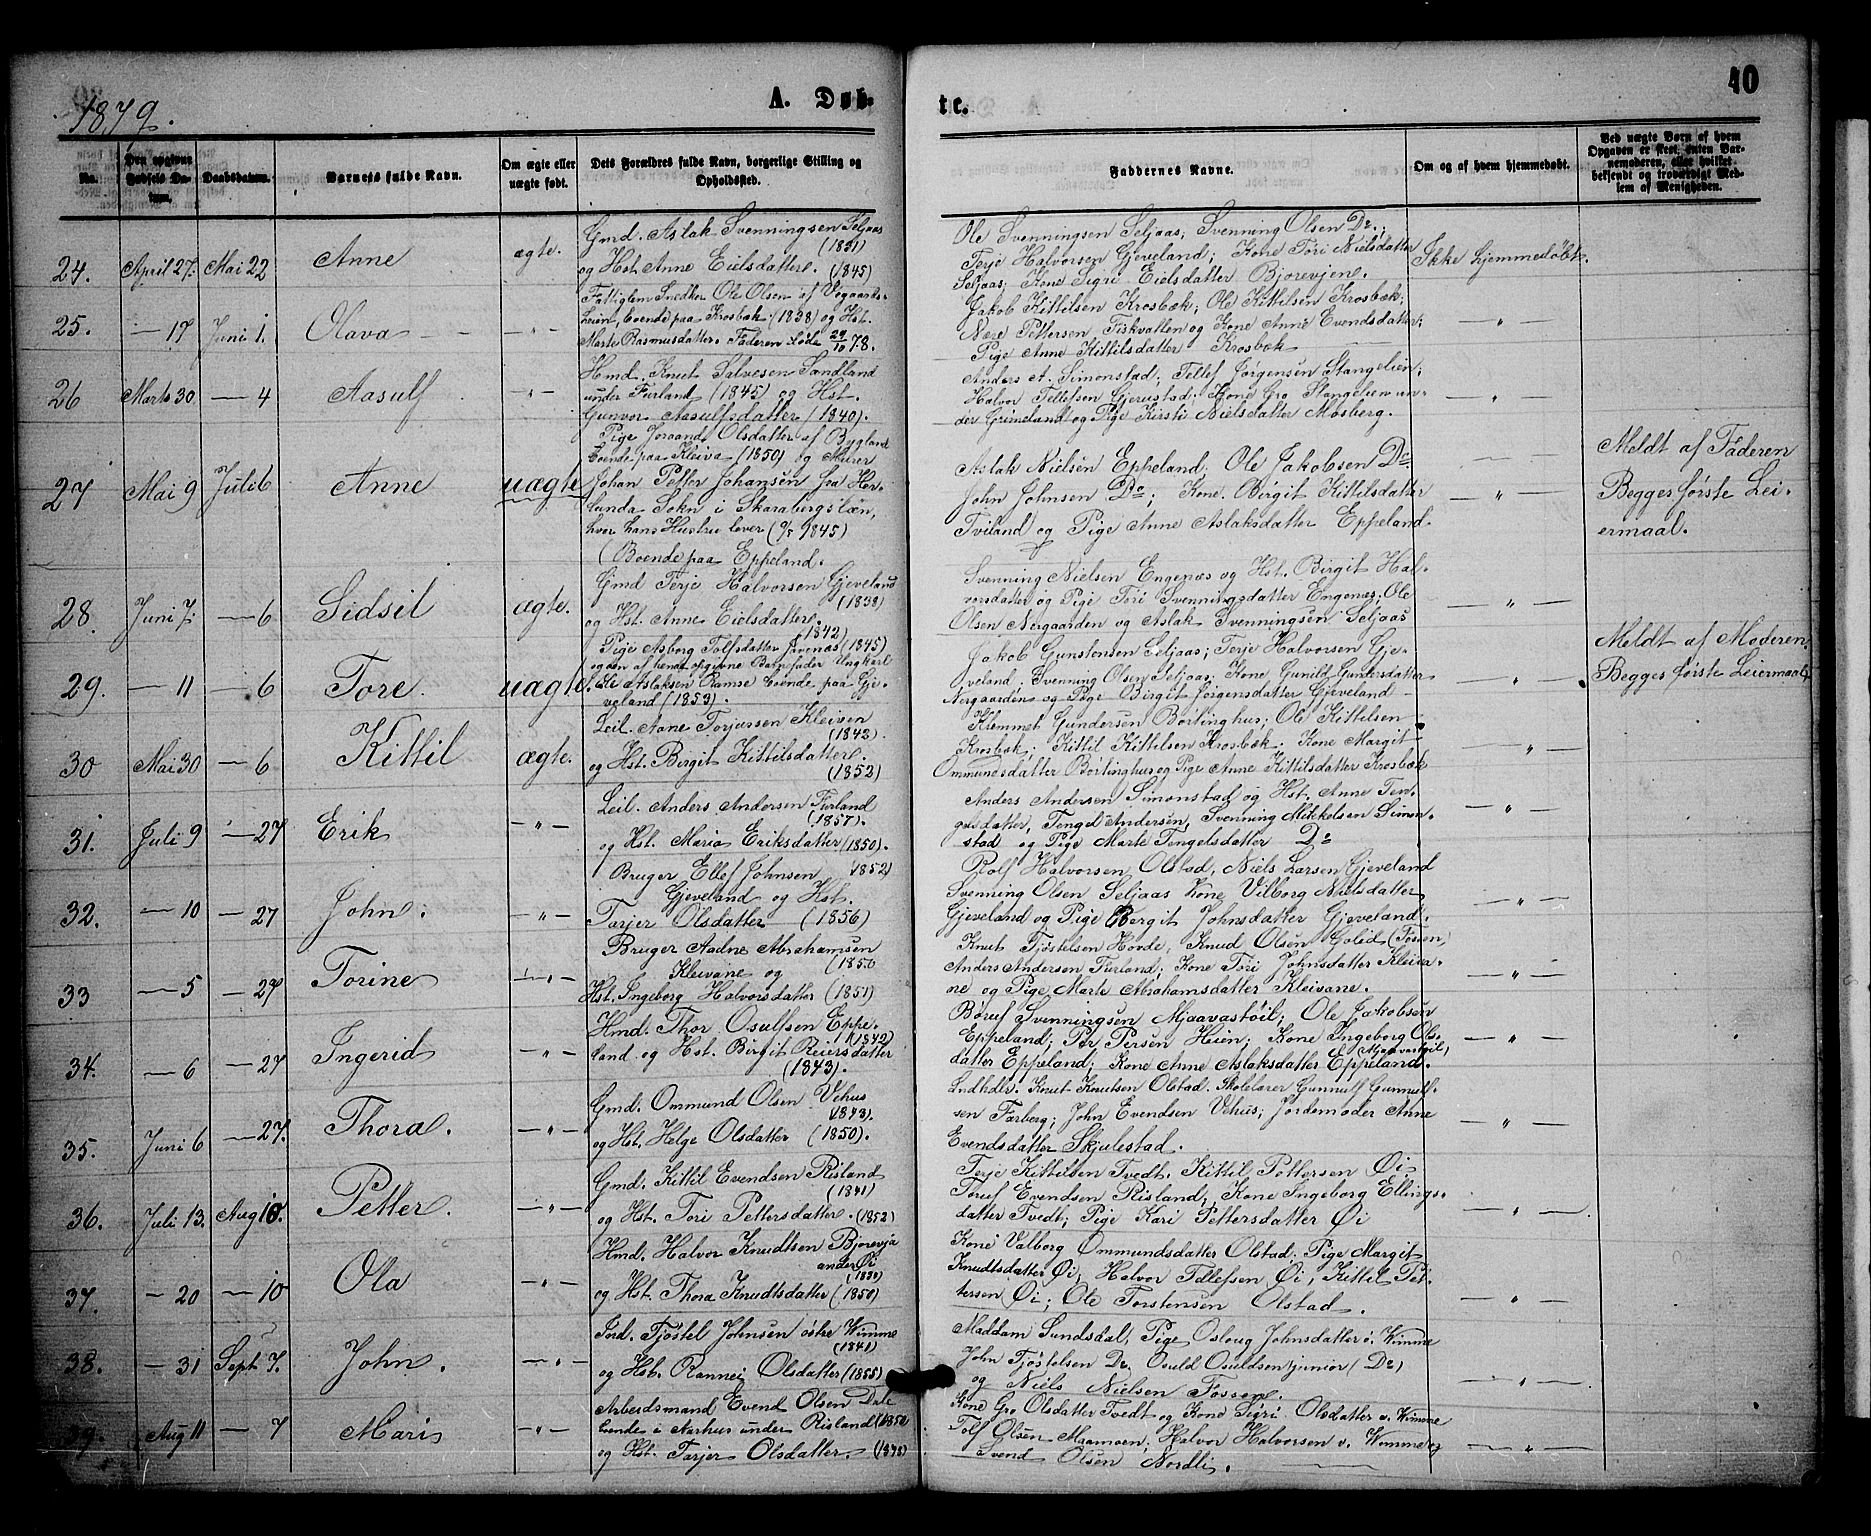 1879.
A. Døb-
te.
40
No.
Den opgivne Fødsels Datum.
Daabsdatum.
Barnets fulde Navn.
Om ægte eller uægte født.
Dets Forældres fulde Navn, borgerlige Stilling og Opholdssted.
Faddernes Navne.
Om og af hvem hjemmedøbt.
Ved uægte Børn af hvem Opgaven er sket, enten Barnemoderen, eller hvilket bekjendt og troværdigt Medlem af Menigheden.
24. April 27. Mai 22 Anne ægte.
Gmd. Aslak Svenningsen Seljaas
(1831)
og Hst. Anne Eielsdatter. (1845)
Ole Svenningsen Seljaas; Svenning Olsen Do.;
Terje Halvorsen Gjeveland; Kone Tori Nielsdatter
Seljaas; Kone Sigri Eielsdatter Bjorevjen.
Ikke hjemmedøbt.
25. — 17 Juni 1. Olava — " —
Fattiglem Snedker Ole Olsen af Vegaarts-
heien, boende paa Krosbæk (1838) og Hst.
Marte Rasmusdatter. Faderen døde 29/10 78.
Jakob Kittilsen Krosbæk; Ole Kittilsen Krosbæk;
Nære Pettersen Fiskvatten og Kone Anne Evendsdatter;
Pige Anne Kittilsdatter Krosbæk
— " —
26 Marts 30 — 4 Aasulf — " —
Hmd. Knut Salvesen Sandland
under Furland (1845) og Hst.
Gunvor Aasulfsdatter (1840).
Anders A. Simonstad; Tellef Jørgensen Stangelien;
Halvor Tellefsen Gjerustad; Kone Gro Stangelien un-
der Grimeland og Pige Kirsti Nielsdatter Mosberg.
— " —
27 Mai 9 Juli 6 Anne uægte
Pige Joraand Olsdatter af Bygland
boende paa Kleiva (1850) og Murer
Johan Petter Johansen fra Her-
lunda Sokn i Skarabergslæn,
hvor hans Hustru lever (9/5 1845)
(Boende paa Eppeland.
Aslak Nielsen Eppeland. Ole Jakobsen Do.
John Johnsen Do; Kone. Birgit Kittilsdatter
Tviland og Pige Anne Aslaksdatter Eppeland.
— " —
Meldt af Faderen
Begges første Lei-
ermaal.
28. Juni 7. — 6 Sidsil ægte.
Gmd Terje Halvorsen Gjeveland
(1838)
og Hst. Anne Eielsdatter.
1842)
Svenning Nielsen Engenæs og Hst. Birgit Hal-
vorsdatter og Pige Tori Svenningsdatter Engenæs; Ole
Olsen Nergaarden og Aslak Svenningsen Seljaas
— " —
29. — 11 — 6 Tore. uægte.
Pige Asborg Tolfsdatter Jrenæs (1845)
og den af hende opgivne Barnefader Ungkarl
Ole Aslaksen Ramse boende paa Gje-
veland (1853).
Jakob Gunstensen Seljaas; Terje Halvorsen Gje-
veland. Svenning Olsen Seljaas; Kone Gunild Gundersdatter
Nergaarden og Pige Birgit Jørgensdatter Gjeveland
— " —
Meldt af Moderen,
Begges første Leiermaal,
30 Mai 30 — 6 Kittil ægte.
Leil. Aane Torjussen Kleiven
(1843).
og Hst. Birgit Kittilsdatter.
(1852)
Klemmet Gundersen Børtinghus; Ole Kittilsen
Krosbæk; Kittil Kittilsen Krosbæk. Kone Margit
Ommundsdatter Børtinghus og Pige Anne Kittilsdatter Krosbæk
— " —
31. Juli 9 — 27 Erik — " —
Leil. Anders Andersen Furland
(1857).
og Hst. Maria Eriksdatter (1850).
Anders Andersen Simonstad og Hst. Anne Ten-
gelsdatter, Tengel Andersen, Svenning Mikkelsen Simon-
stad og Pige Marte Tengelsdatter Do
— " —
32. — 10 — 27 John. — " —
Bruger Ellef Johnsen 1852)
Gjeveland og Hst.
Tarjer Olsdatter (1856)
Rolf Halvorsen Olstad, Niels Larsen Gjeveland
Svenning Olsen Seljaas Kone Vilborg Nielsdatter
Gjeveland og Pige Bergit Johnsdatter Gjeveland.
— " —
33 — 5 — 27 Torine — " —
Bruger Aadne Abrahamsen
Kleivane og (1850
Hst. Ingeborg Halvorsdatter (1851)
Knut Tjøstelsen Hovde; Knud Olsen Golid (Fossen,
Anders Andersen Furland; Kone Tori Johnsdatter Kleiva-
ne og Pige Marte Abrahamsdatter Kleivane.
— " —
34. — 6 — 27 Ingerid — " —
Hmd. Thor Osulfsen Eppe-
1842)
land og Hst. Birgit Reiersdatter
(1843).
Børuf Svenningsen Mjaavastøil; Ole Jakobsen
Eppeland; Per Persen Heien; Kone Ingeborg Ols-
datter Eppeland; Kone Anne Aslaksdatter Eppeland.
— " —
35. Juni 6 — 27. Thora. — " —
Gmd. Ommund Olsen Vehus
1843).
og Hst. Helge Olsdatter (1850).
Indhdls. Knut Knutsen Olstad. Skolelærer Gunnulf Gunnulf-
sen Farberg; John Evendsen Vehus; Jordemoder Anne
Evendsdatter Skjulestad.
— " —
36. Juli 13. Aug 10. Petter. — " —
Gmd. Kittil Evendsen Risland
(1841)
og Hst. Tori Pettersdatter. (1852)
Terje Kittilsen Tvedt. Kittil Pettersen Øi
Toruf Evendsen Risland; Kone Ingeborg Ellings-
datter Tvedt; Pige Kari Pettersdatter Øi
— " —
37. — 20 — 10 Ola — " —
Hmd. Halvor Knudtsen Bjorevja
under Øi
(1830)
og Hst. Thora Knudtsdatter (1850)
Kone Valborg Ommundsdatter Olstad. Pige Margit
Knudtsdatter Øi; Halvor Tellefsen Øi; Kittil Pet-
tersen Øi; Ole Torstensen Olstad.
— " —
38. — 31 Sept 7. John. — " —
Tord. Tjøstel Johnsen østre Wimme
(1841)
og Hst. Rannei Olsdatter (1855)
Maddam Sundsdal, Pige Oslaug Johnsdatter ø. Wimme
John Tjøstelsen Do. Osuld Osuldsen junior (Do)
og Niels Nielsen Fossen.
— " —
39. Aug 11 — 7 Mari — " —
Arbeidsmand Evend Olsen Dale
boende i Aarhus under Risland (1852
og Hst. Tarjer Olsdatter. (1838)
Kone Gro Olsdatter Tvedt og Kone Sigri Olsdatter v. Wimme
Tolf Olsen Maamoen; Halvor Halvorsen v. Wimme og
Svend Olsen Nordli.
— " —